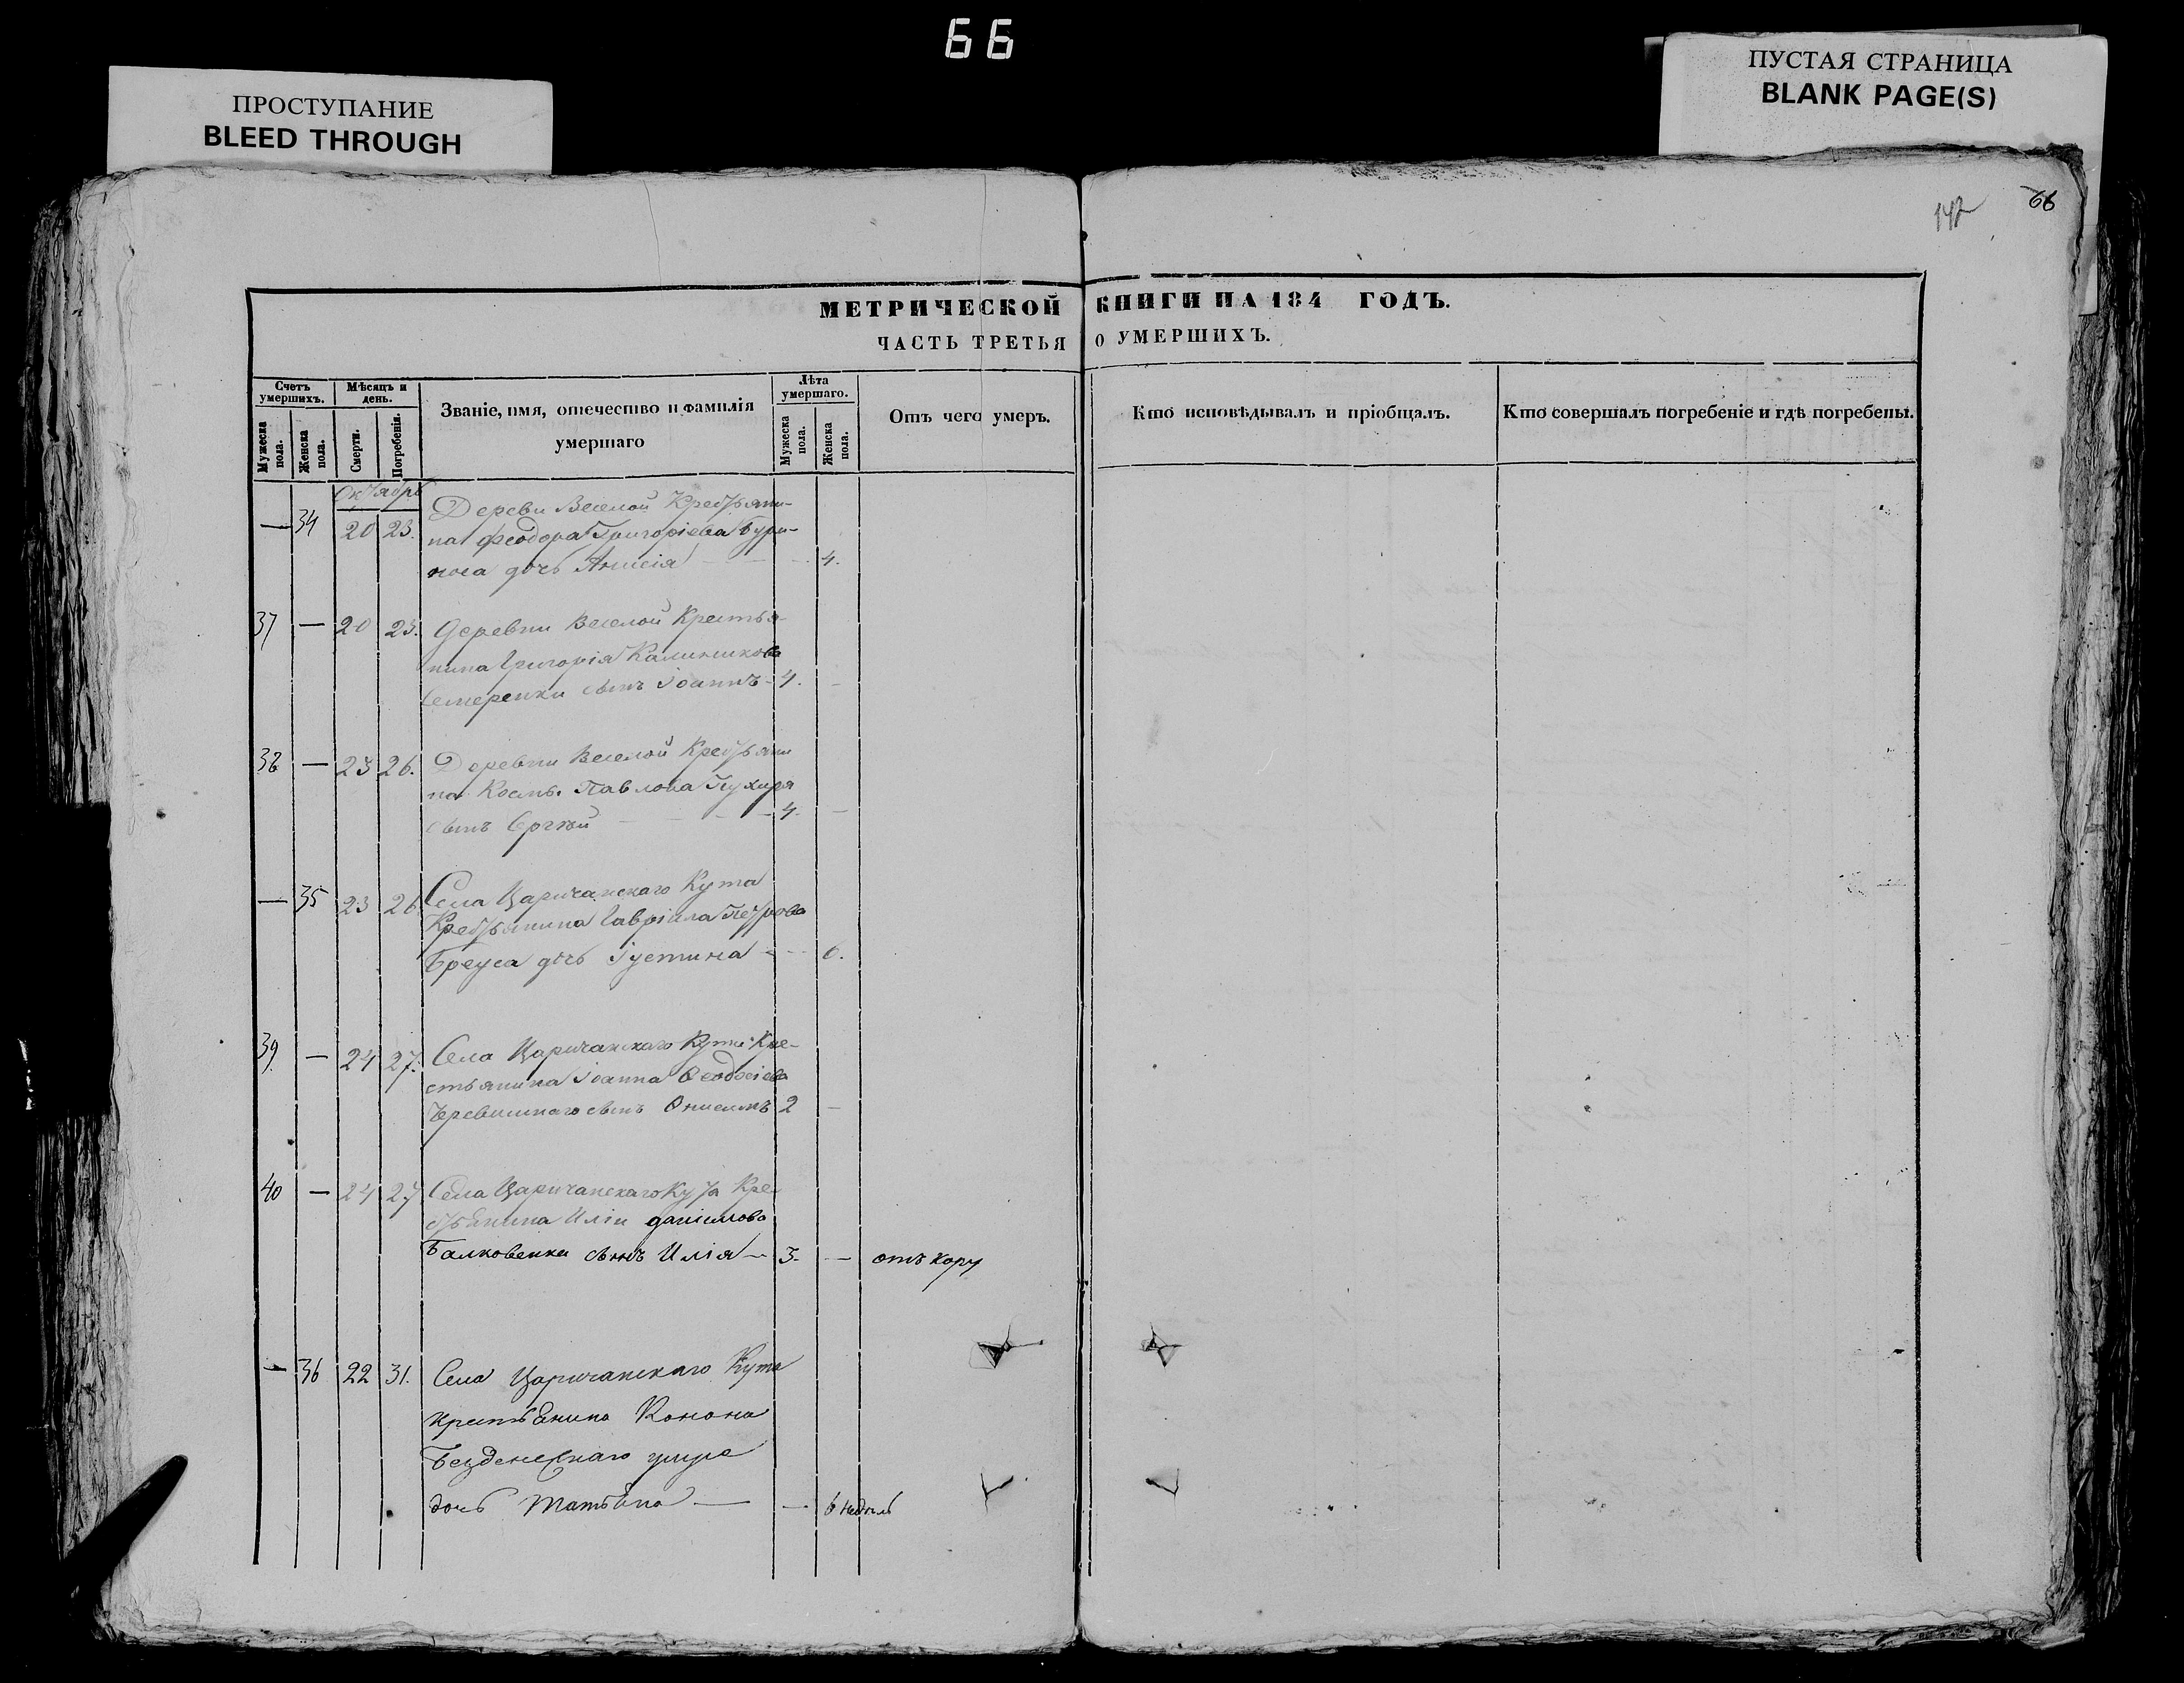 66
ПРОСТУПАНИЕ
BLEED THROUGH
ПУСТАЯ СТРАНИЦА
BLANK PAGE(S)
66
142
МЕТРИЧЕСКОЙ КНИГИ НА 184 ГОДЪ.
ЧАСТЬ ТРЕТЬЯ О УМЕРШИХЪ.
Счетъ умершихъ.
Мужеска пола.
Женска пола.
Мѣсяцъ и день.
Смерти.
Погребенія.
Званіе, имя, отечество и фамилія умершаго
Лѣта умершаго.
Мужеска пола.
Женска пола.
Отъ чего умеръ.
Кто исповѣдывалъ и пріобщалъ.
Кто совершалъ погребеніе и гдѣ погребены.
Октябрь
— 34 20 23. Деревн Веселой Крестьяни-
на Феодора Григоріева Бури-
носа дочь Анисія — — 4.
37 — 20 23. Деревни Веселой Крестья-
нина Григорія Калиникова
сынъ Іоаннъ - 4. —
38 — 23 26. Деревни Веселой Крестьяни
на Космы Павлова Пухиря
сынъ Сергѣй — — — 4. —
— 35 23 26 Села Царичанскаго Кута
Крестьянина Гавріила Петрова
Бреуса дочь Іустина - - 6.
39. — 24 27. Села Царичанскаго Кута Кре-
стьянина Іоанна Ѳеодосіева
сынъ Онисимъ 2 —
40 — 24 27 Села Царичанскаго Кута Кре-
стьянина Иліи Даніилова
Балковенка сынъ Илія — 3. — отъ кору
— 36 22 31. Села Царичанскаго Кута
крестьянина Конона
дочь Татьяна — — 6 недѣль